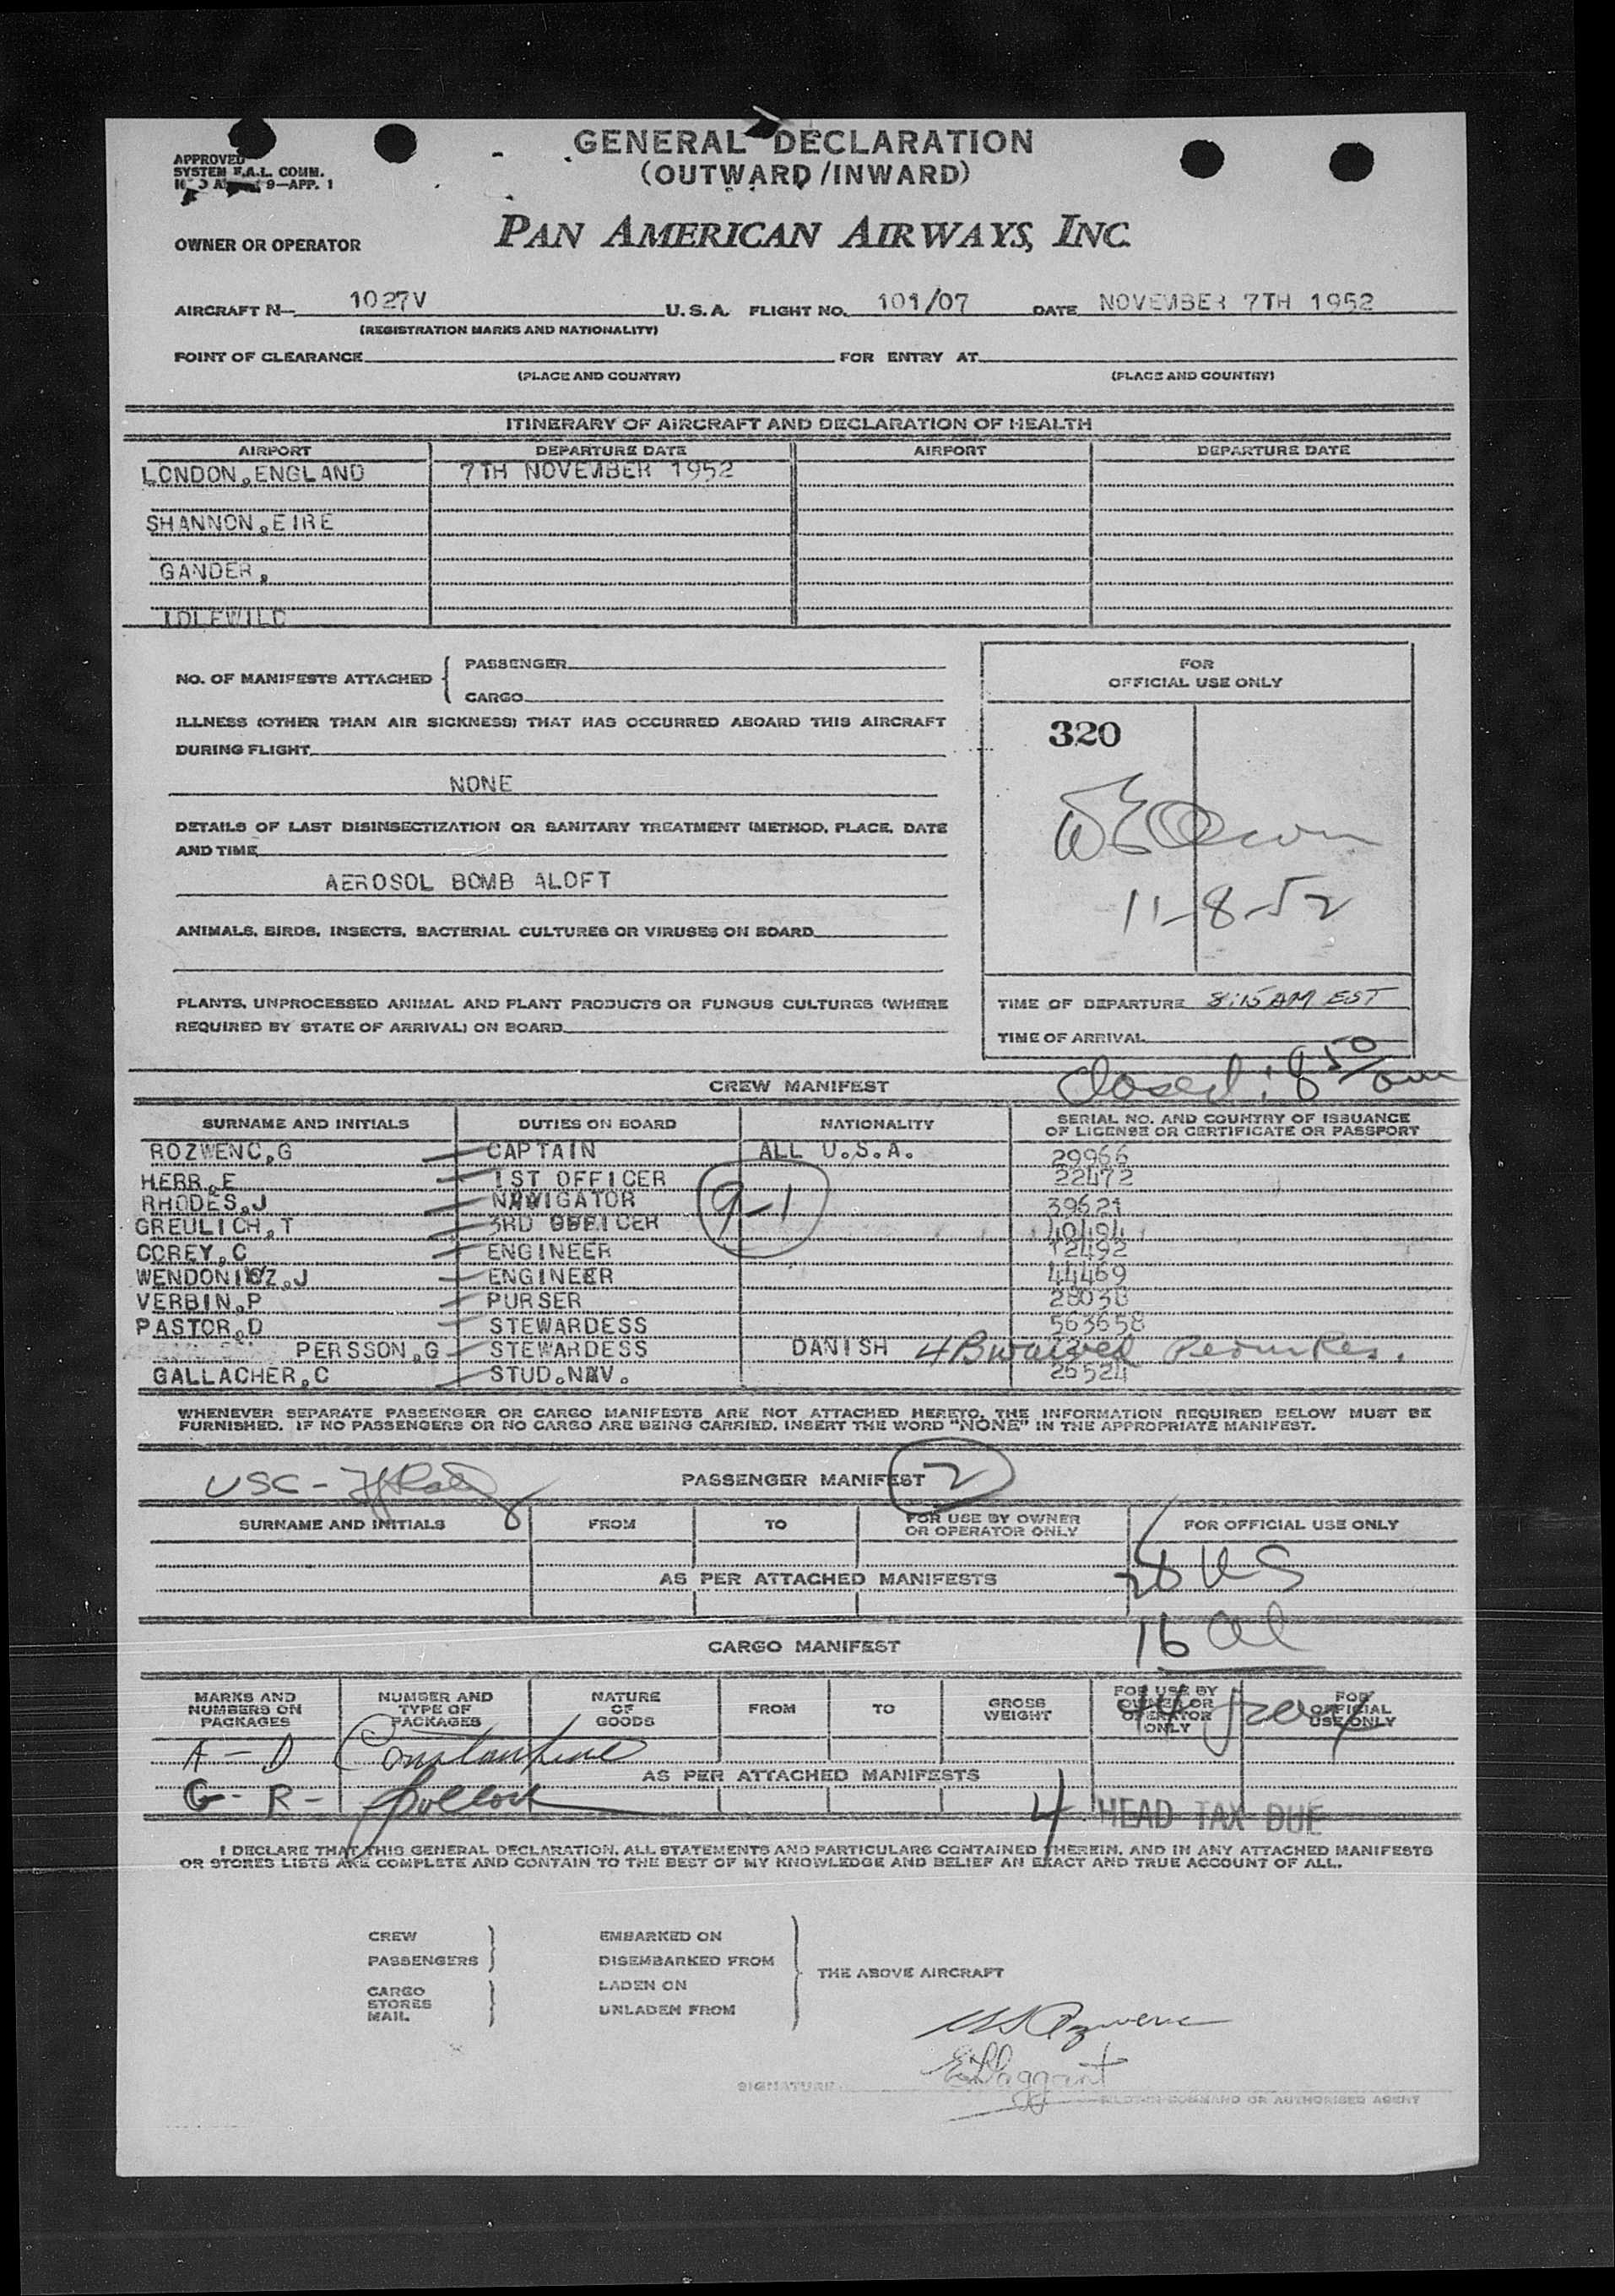 GENERAL DECLARATION
(OUTWARD/INWARD)
APPROVED
SYSTEM F.A.L. COMM.
9—APP. 1
PAN AMERICAN AIRWAYS, INC.
OWNER OR OPERATOR
AIRCRAFT N— 1027V U.S.A. FLIGHT NO. 101/07 DATE NOVEMBER 7TH 1952
(REGISTRATION MARKS AND NATIONALITY)
POINT OF CLEARANCE FOR ENTRY AT
(PLACE AND COUNTRY) (PLACE AND COUNTRY)
ITINERARY OF AIRCRAFT AND DECLARATION OF HEALTH
AIRPORT DEPARTURE DATE AIRPORT DEPARTURE DATE
LONDON,ENGLAND 7TH NOVEMBER 1952
SHANNON,EIRE
GANDER,
IDLEWILD
NO. OF MANIFESTS ATTACHED { PASSENGER
CARGO
ILLNESS (OTHER THAN AIR SICKNESS) THAT HAS OCCURRED ABOARD THIS AIRCRAFT
DURING FLIGHT
NONE
DETAILS OF LAST DISINSECTIZATION OR SANITARY TREATMENT (METHOD, PLACE, DATE
AND TIME
AEROSOL BOMB ALOFT
ANIMALS, BIRDS, INSECTS, BACTERIAL CULTURES OR VIRUSES ON BOARD
PLANTS, UNPROCESSED ANIMAL AND PLANT PRODUCTS OR FUNGUS CULTURES (WHERE
REQUIRED BY STATE OF ARRIVAL) ON BOARD
FOR
OFFICIAL USE ONLY
320
11-8-52
TIME OF DEPARTURE 8:15 AM EST
TIME OF ARRIVAL
Closed: 8 50/am
CREW MANIFEST
SURNAME AND INITIALS DUTIES ON BOARD NATIONALITY SERIAL NO. AND COUNTRY OF ISSUANCE
OF LICENSE OR CERTIFICATE OR PASSPORT
ROZWENC,G CAPTAIN ALL U.S.A. 29966
HERR,E 1ST OFFICER 22472
RHODES,J NAVIGATOR 9-1 39621
GREULICH,T 3RD OFFICER 40494
COREY,C ENGINEER 12492
WENDONIWZ,J ENGINEER 44469
VERBIN,P PURSER 28038
PASTOR,D STEWARDESS 563658
PERSSON,G STEWARDESS DANISH 4B waived
GALLACHER,C STUD.NAV. 26524
WHENEVER SEPARATE PASSENGER OR CARGO MANIFESTS ARE NOT ATTACHED HERETO, THE INFORMATION REQUIRED BELOW MUST BE
FURNISHED. IF NO PASSENGERS OR NO CARGO ARE BEING CARRIED, INSERT THE WORD "NONE" IN THE APPROPRIATE MANIFEST.
USC - PASSENGER MANIFEST 2
SURNAME AND INITIALS FROM TO FOR USE BY OWNER
OR OPERATOR ONLY FOR OFFICIAL USE ONLY
28 US
AS PER ATTACHED MANIFESTS
16 al
CARGO MANIFEST
MARKS AND
NUMBERS ON
PACKAGES
NUMBER AND
TYPE OF
PACKAGES
NATURE
OF
GOODS
FROM TO GROSS
WEIGHT
FOR USE BY
OWNER OR
OPERATOR
ONLY
FOR
OFFICIAL
USE ONLY
44
A - D Constantine
AS PER ATTACHED MANIFESTS
G - R - Pollock
4 HEAD TAX DUE
I DECLARE THAT THIS GENERAL DECLARATION, ALL STATEMENTS AND PARTICULARS CONTAINED THEREIN, AND IN ANY ATTACHED MANIFESTS
OR STORES LISTS ARE COMPLETE AND CONTAIN TO THE BEST OF MY KNOWLEDGE AND BELIEF AN EXACT AND TRUE ACCOUNT OF ALL.
CREW
PASSENGERS
CARGO
STORES
MAIL
EMBARKED ON
DISEMBARKED FROM
LADEN ON
UNLADEN FROM
THE ABOVE AIRCRAFT
SIGNATURE
PILOT-IN-COMMAND OR AUTHORISED AGENT